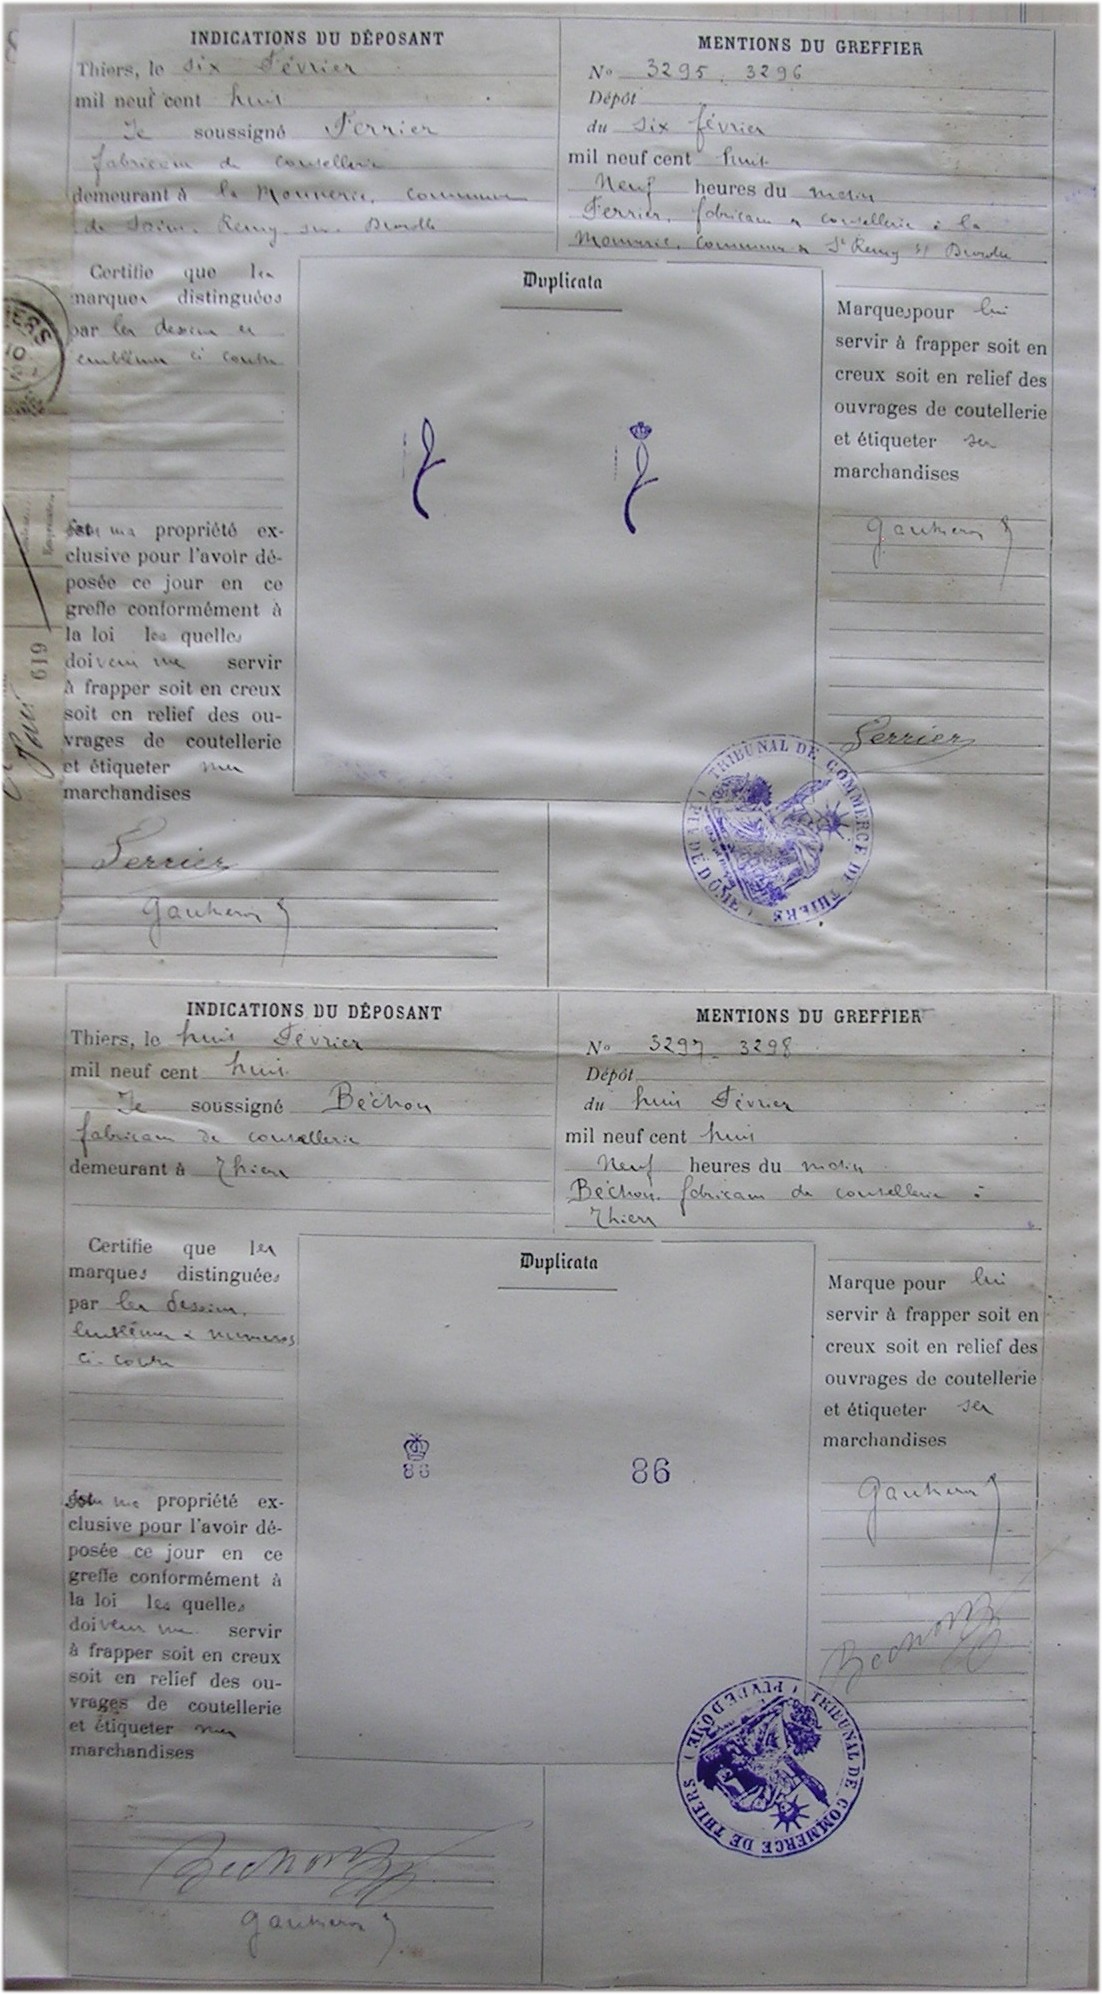 INDICATIONS DU DÉPOSANT
Thiers, le six Février
mil neuf cent huit
Je soussigné Ferrier
fabricant de coutellerie
demeurant à la Monnerie, commune
de Saint Remy sur Durolle
Certifie que les
marques distinguées
par les dessins et
emblèmes ci contre
sont ma propriété ex-
clusive pour l'avoir dé-
posée ce jour en ce
greffe conformément à
la loi les quelles
doivent me servir
à frapper soit en creux
soit en relief des ou-
vrages de coutellerie
et étiqueter mes
marchandises
Ferrier
MENTIONS DU GREFFIER
No 3295. 3296
Dépôt
du six février
mil neuf cent huit
Neuf heures du matin
Ferrier, fabricant de coutellerie à la
Monnerie, commune de St Remy s/ Durolle
Duplicata
Marques pour lui
servir à frapper soit en
creux soit en relief des
ouvrages de coutellerie
et étiqueter ses
marchandises
Ferrier
TRIBUNAL DE COMMERCE DE THIERS (PUY DE DÔME)
THIERS
619
INDICATIONS DU DÉPOSANT
Thiers, le huit Février
mil neuf cent huit
Je soussigné Béchon
fabricant de coutellerie
demeurant à Thiers
Certifie que les
marques distinguées
par les dessins,
emblèmes & numéros
ci-contre
sont ma propriété ex-
clusive pour l'avoir dé-
posée ce jour en ce
greffe conformément à
la loi les quelles
doivent me servir
à frapper soit en creux
soit en relief des ou-
vrages de coutellerie
et étiqueter mes
marchandises
MENTIONS DU GREFFIER
No 3297 - 3298
Dépôt
du huit Février
mil neuf cent huit
Neuf heures du matin
Béchon, fabricant de coutellerie à
Thiers
Duplicata
86
86
Marque pour lui
servir à frapper soit en
creux soit en relief des
ouvrages de coutellerie
et étiqueter ses
marchandises
TRIBUNAL DE COMMERCE DE THIERS (PUY DE DÔME)